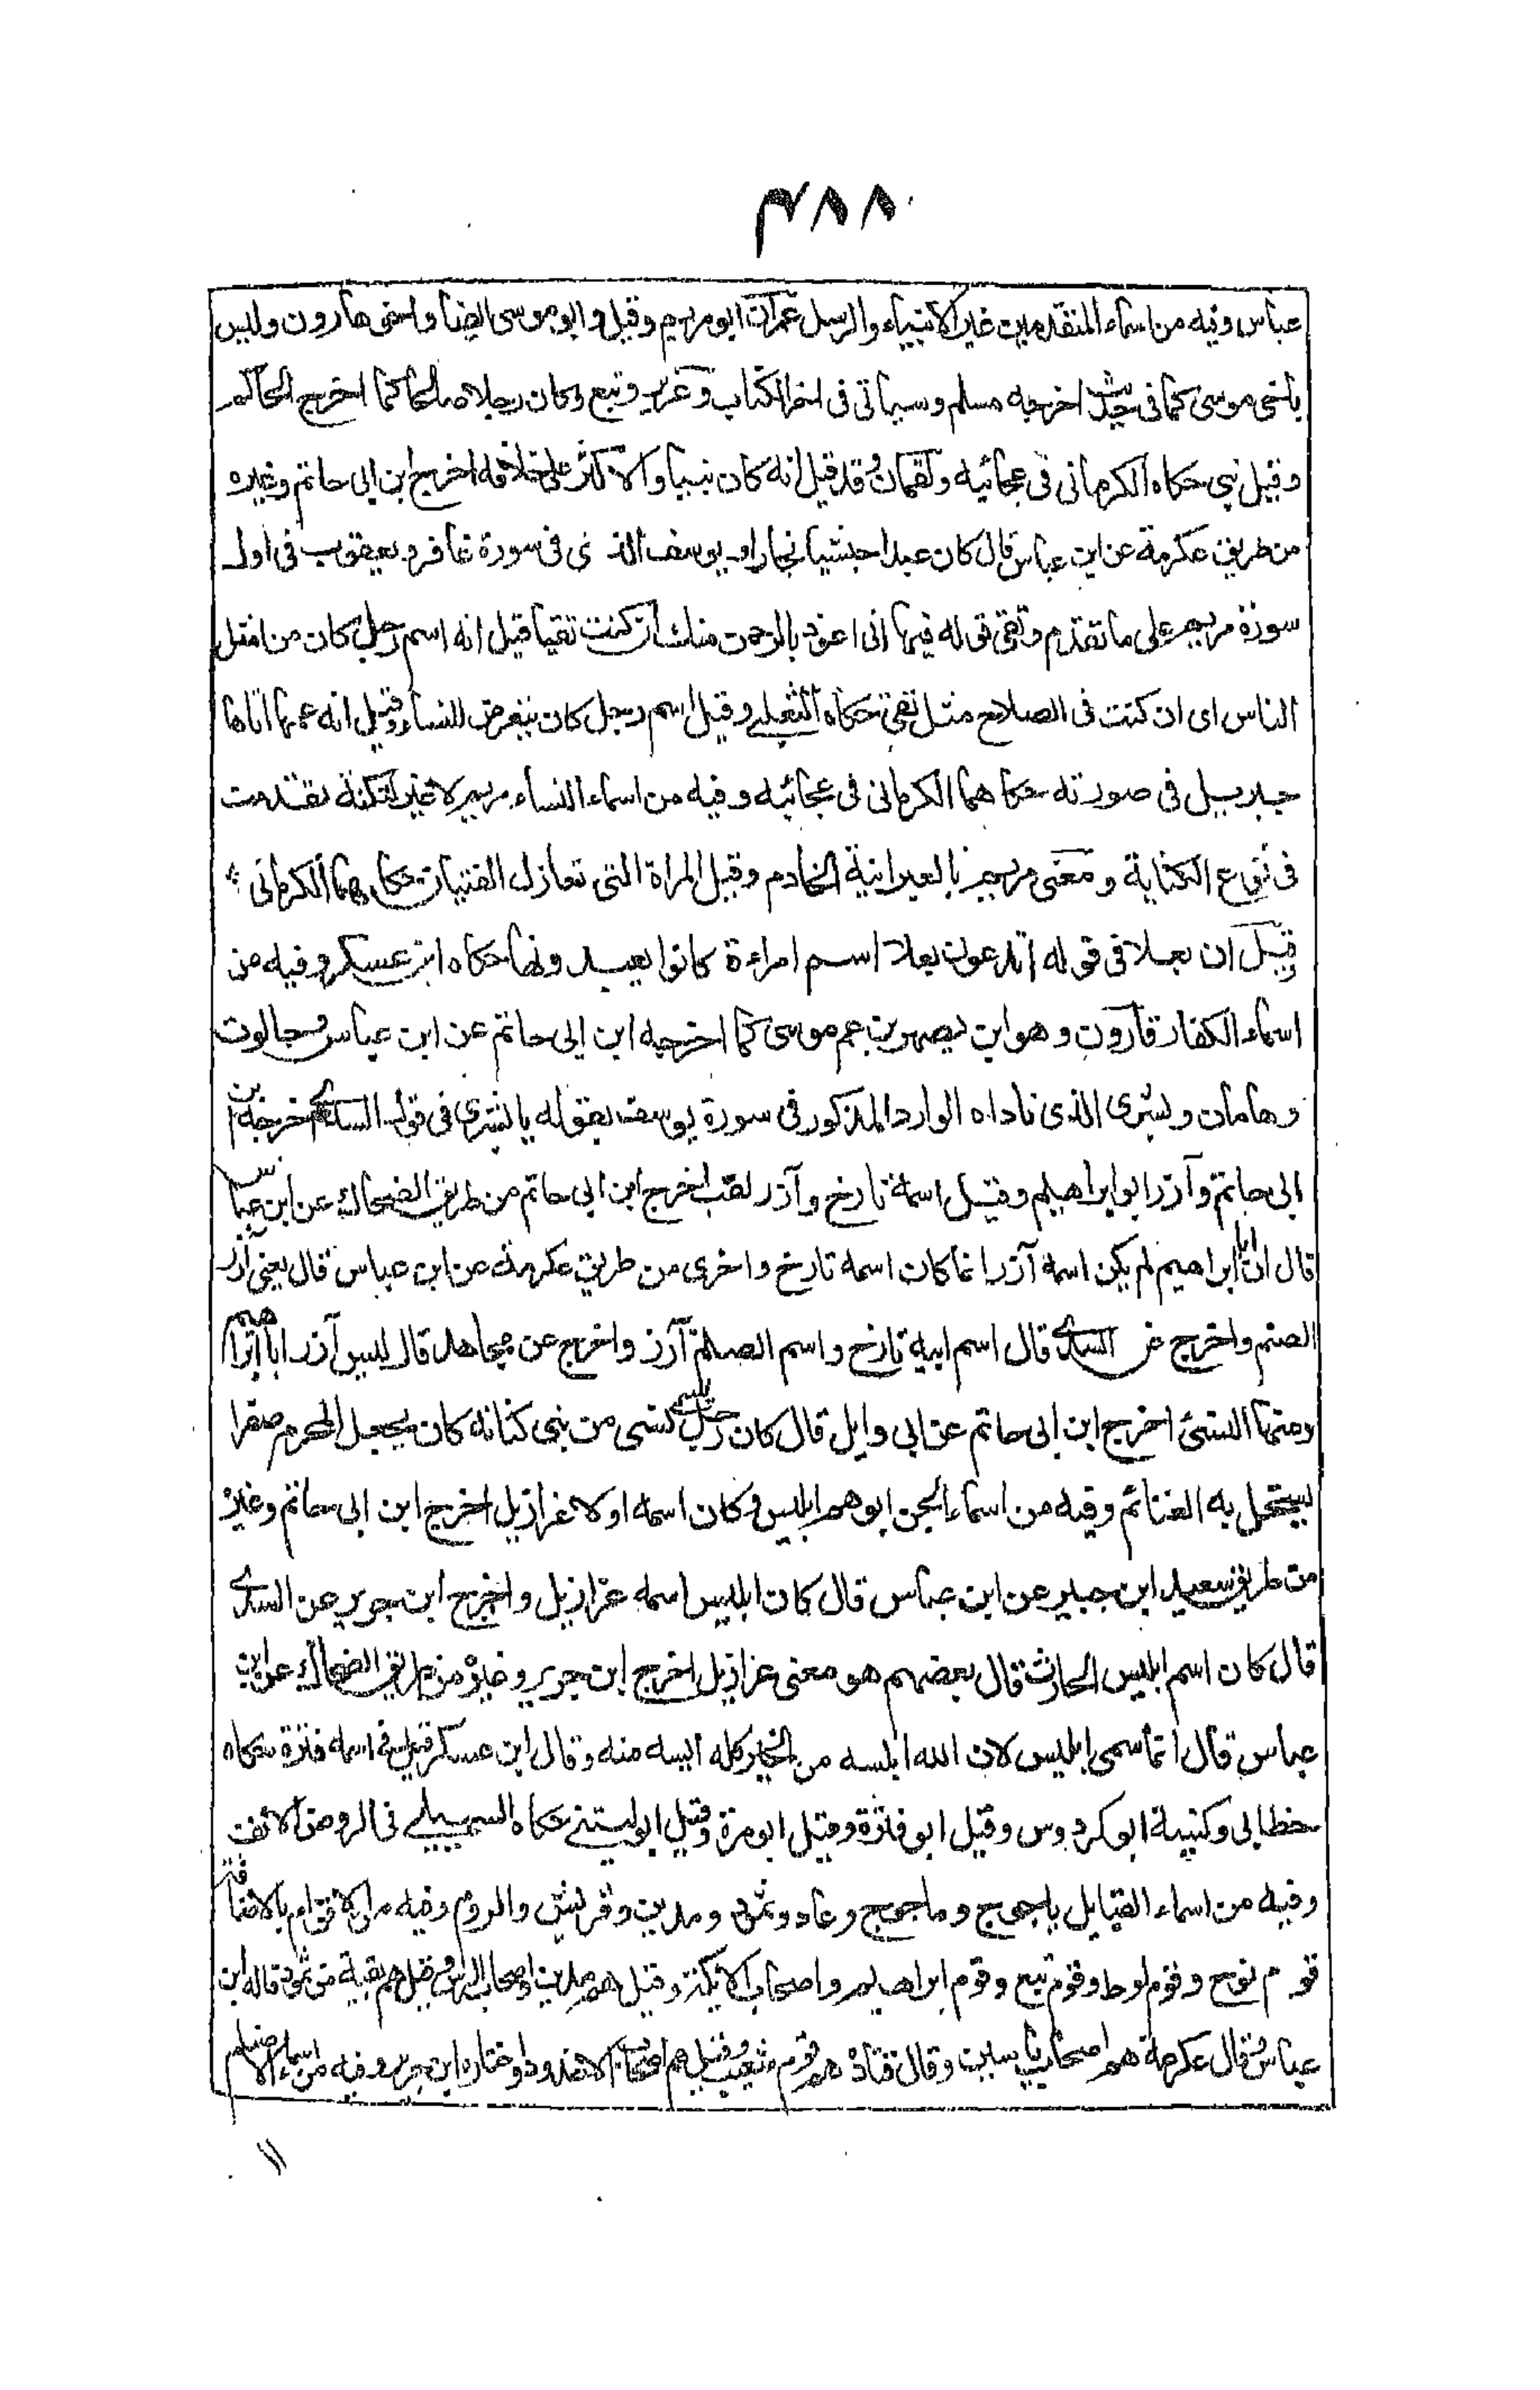 ٣٨٨
عباس وفيه من اسماء المتقدمين غير الانبياء والرسل عمران ابو مريم وقيل وابو موسى ايضا واخوها رون وليس
باخى موسى كما فى حديث اخرجه مسلم وسياتى فى اخر الكتاب وعزير وتبع وكان رجلا صالحا كما اخرج الحاكم
وقيل نبى حكاه الكرمانى فى عجائبه ولقمان وقد قيل انه كان نبيا والاكثر على خلافه اخرج ابن ابى حاتم وغيره
من طريق عكرمة عن ابن عباس قال كان عبدا حبشيا نجارا و يوسف الذى فى سورة غافر و يعقوب فى اول
سورة مريم على ما تقدم وتقى فى قوله فيها انى اعوذ بالرحمن منك ان كنت تقيا قيل انه اسم رجل كان من امثل
الناس اى ان كنت فى الصلاح مثل تقى حكاه الثعلبى وقيل اسم رجل كان يتعرض للنساء وقيل انه عمها اتاها
جبريل فى صورته حكاهما الكرمانى فى عجائبه وفيه من اسماء النساء مريم لا غير لنكتة تقدمت
فى نوع الكناية ومعنى مريم بالعبرانية الخادم وقيل المراة التى تغازل الفتيان حكاهما الكرمانى
وقيل ان بعلا فى قوله اتدعون بعلا اسم امراءة كانوا يعبدونها حكاه ابن عسكر وفيه من
اسماء الكفار قارون وهو ابن يصهر بن عم موسى كما اخرجه ابن ابى حاتم عن ابن عباس وجالوت
وهامان وبشرى الذى ناداه الوارد المذكور فى سورة يوسف بقوله يا بشرى فى قول السدى اخرجه ابن
ابى حاتم وآزر ابو ابراهيم وقيل اسمه تارخ وآزر لقب اخرج ابن ابى حاتم من طريق الضحاك عن ابن عباس
قال ان ابا ابراهيم لم يكن اسمه آزر انما كان اسمه تارخ واخرى من طريق عكرمة عن ابن عباس قال يعنى آزر
الصنم واخرج عن السدى قال اسم ابيه تارخ واسم الصنم آزر واخرج عن مجاهد قال ليس آزر ابا ابراهيم
ومنها النسئ اخرج ابن ابى حاتم عن ابى وايل قال كان رجل يسمى النسى من بنى كنانة كان يجعل المحرم صفرا
ليستحل به الغنائم وفيه من اسماء الجن ابوهم ابليس وكان اسمه اولا عزازيل اخرج ابن ابى حاتم وغيره
من طريق سعيد ابن جبير عن ابن عباس قال كان ابليس اسمه عزازيل واخرج ابن جرير عن السدى
قال كان اسم ابليس الحارث قال بعضهم هو معنى عزازيل اخرج ابن جرير وغيره من طريق الضحاك عن ابن
عباس قال انما سمى ابليس لان الله ابلسه من الخير كله ايسه منه وقال ابن عسكر قيل فى اسمه قترة حكاه
خطابى وكنيته ابو كردوس وقيل ابو قترة وقيل ابو مرة وقيل ابو لبينى حكاه السهيلى فى الروض الانف
وفيه من اسماء القبايل ياجوج وماجوج وعاد وثمود ومدين وقريش والروم وفيه من الاقوام بالاضافة
قوم نوح وقوم لوط وقوم تبع وقوم ابراهيم واصحاب الايكة وقيل هم مدين واصحاب الرس وقيل هم بقية من ثمود قاله ابن
عباس وقال عكرمة هم اصحاب ياسين وقال قتادة هم قوم شعيب وقيل هم اصحاب الاخدود واختاره ابن جرير وفيه من اسماء الاصنام
١١